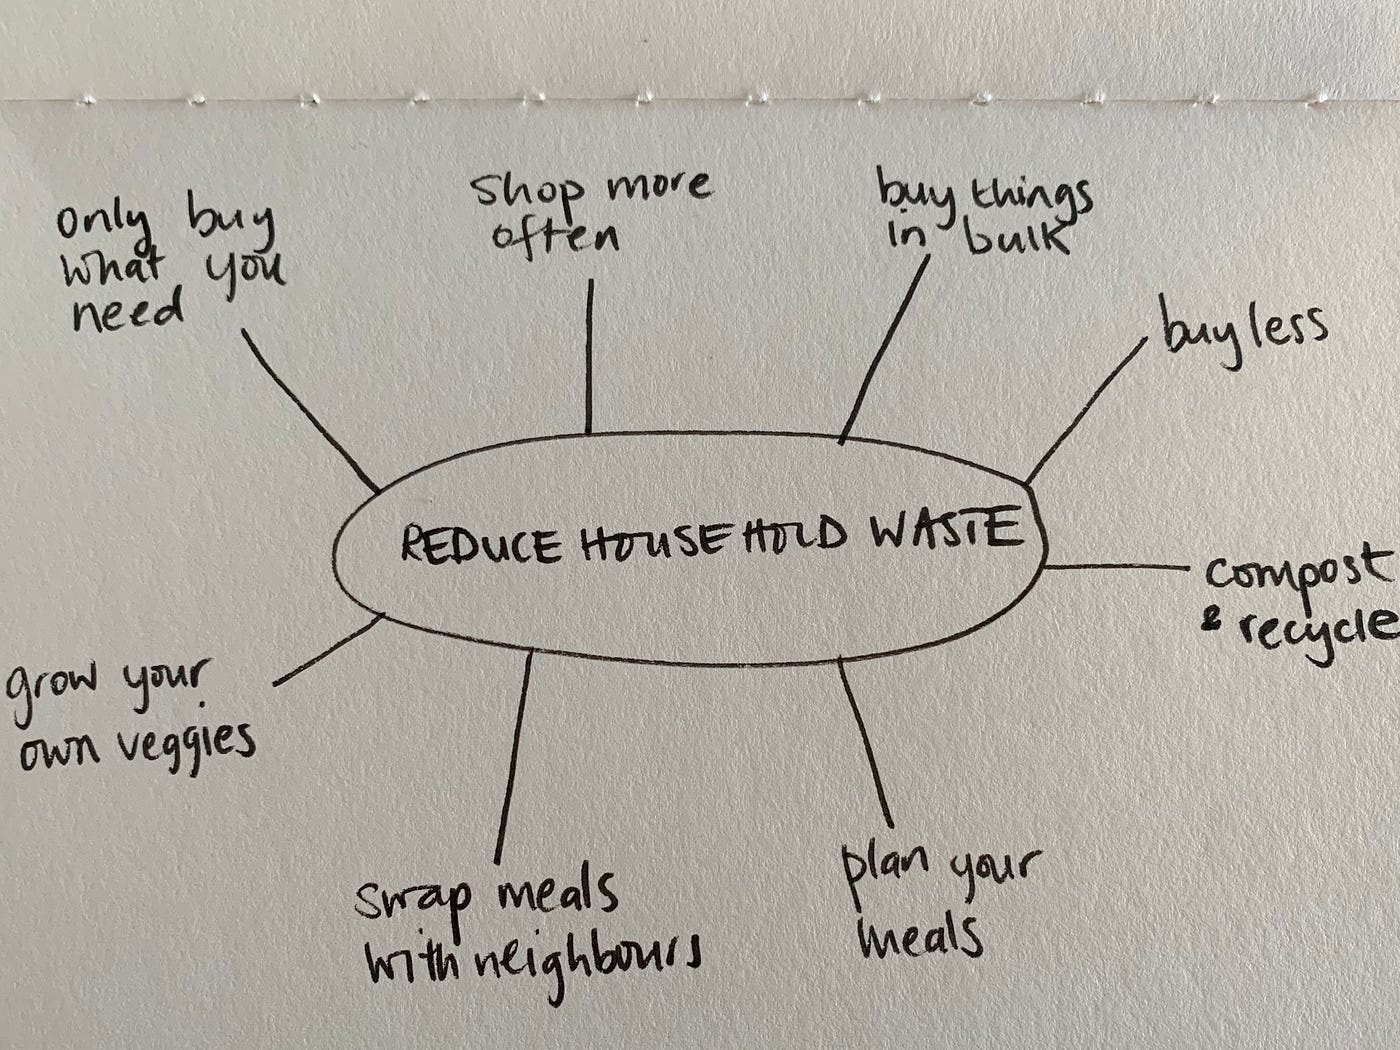 only buy
what you
need
shop more
often
buy things
in bulk
buy less
REDUCE HOUSEHOLD WASTE
compost
& recycle
grow your
own veggies
swap meals
with neighbours
plan your
meals